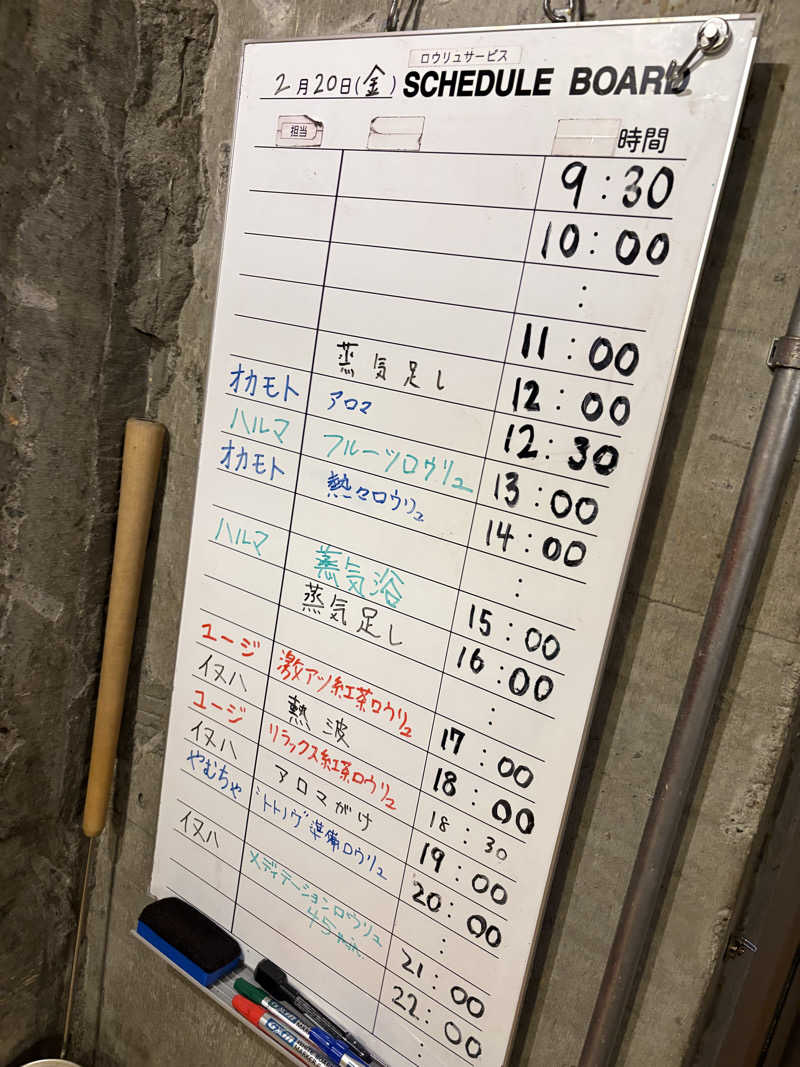 ロウリュサービス
2月20日(金) SCHEDULE BOARD
担当 時間
9:30
10:00
:
11:00
蒸気足し 12:00
オカモト アロマ 12:30
ハルマ フルーツロウリュ 13:00
オカモト 熱々ロウリュ 14:00
:
ハルマ 蒸気浴 15:00
蒸気足し 16:00
:
ユージ 激アツ紅茶ロウリュ 17:00
イヌハ 熱波 18:00
ユージ リラックス紅茶ロウリュ 18:30
イヌハ アロマがけ 19:00
やむちゃ 準備ロウリュ 20:00
:
イヌハ メディテーションロウリュ 21:00
45
22:00
: